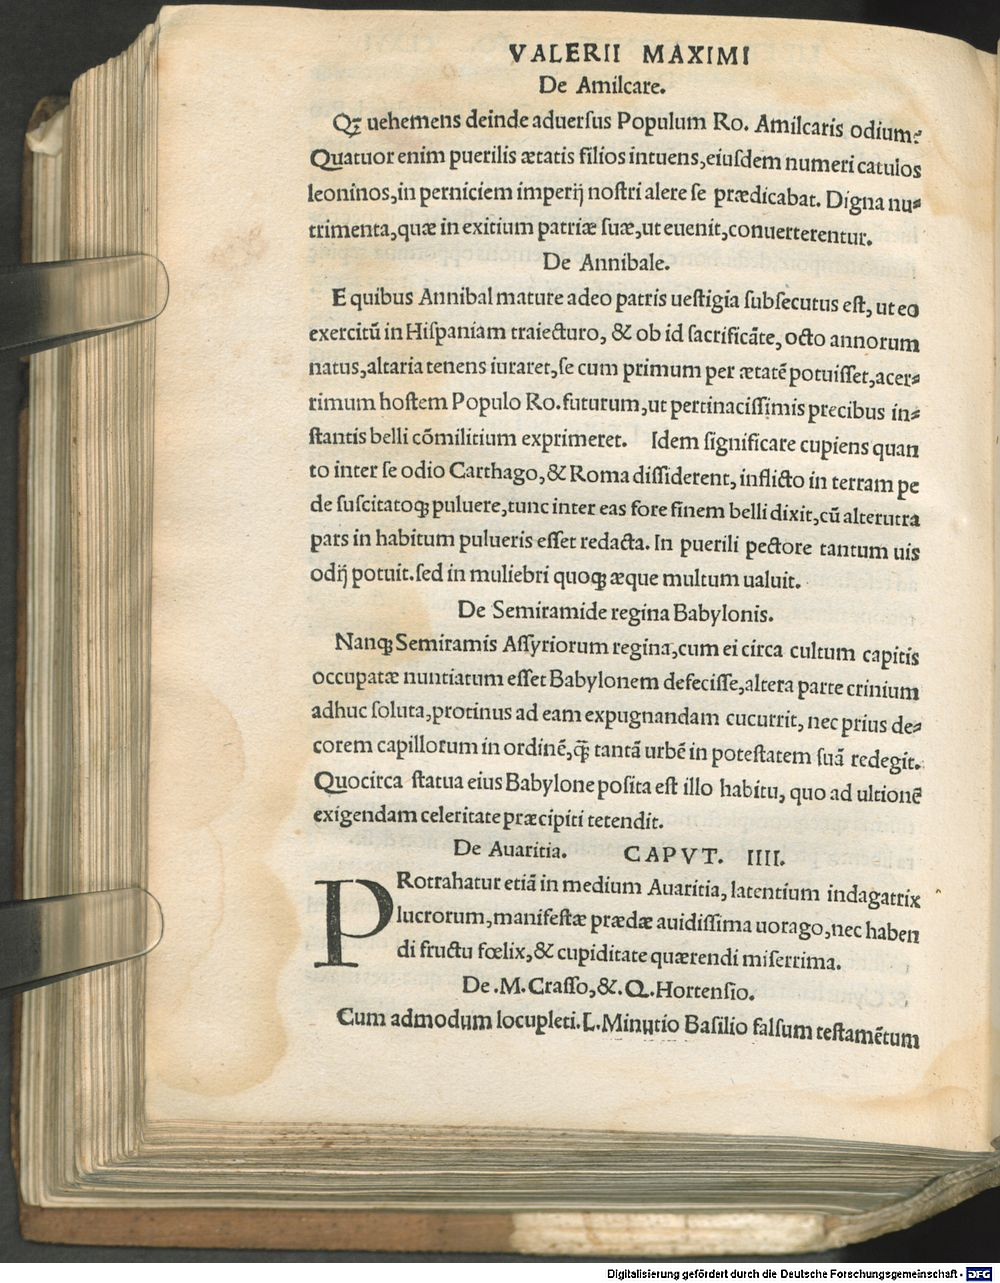 VALERII MAXIMI
De Amilcare.
Qꝫ uehemens deinde aduerſus Populum Ro. Amilcaris odium?
Quatuor enim puerilis ætatis filios intuens, eiuſdem numeri catulos
leoninos, in perniciem imperij noſtri alere ſe prædicabat. Digna nu⸗
trimenta, quæ in exitium patriæ ſuæ, ut euenit, conuerterentur.
De Annibale.
E quibus Annibal mature adeo patris ueſtigia ſubſecutus eſt, ut eo
exercitū in Hiſpaniam traiecturo, & ob id ſacrificāte, octo annorum
natus, altaria tenens iuraret, ſe cum primum per ætatē potuiſſet, acer⸗
rimum hoſtem Populo Ro. futurum, ut pertinaciſſimis precibus in⸗
ſtantis belli cōmilitium exprimeret. Idem ſignificare cupiens quan
to inter ſe odio Carthago, & Roma diſſiderent, inflicto in terram pe
de ſuſcitatoq; puluere, tunc inter eas fore finem belli dixit, cū alterutra
pars in habitum pulueris eſſet redacta. In puerili pectore tantum uis
odij potuit. ſed in muliebri quoq; æque multum ualuit.
De Semiramide regina Babylonis.
Nanq; Semiramis Aſſyriorum regina, cum ei circa cultum capitis
occupatæ nuntiatum eſſet Babylonem defeciſſe, altera parte crinium
adhuc ſoluta, protinus ad eam expugnandam cucurrit, nec prius de⸗
corem capillorum in ordinē, q̄ꝫ tantā urbē in poteſtatem ſuā redegit.
Quocirca ſtatua eius Babylone poſita eſt illo habitu, quo ad ultionē
exigendam celeritate præcipiti tetendit.
De Auaritia. CAPVT. IIII.
PRotrahatur etiā in medium Auaritia, latentium indagatrix
lucrorum, manifeſtæ prædæ auidiſſima uorago, nec haben
di fructu fœlix, & cupiditate quærendi miſerrima.
De .M. Craſſo, &. Q. Hortenſio.
Cum admodum locupleti. L. Minutio Baſilio falſum teſtamētum
Digitalisierung gefördert durch die Deutsche Forschungsgemeinschaft - DFG